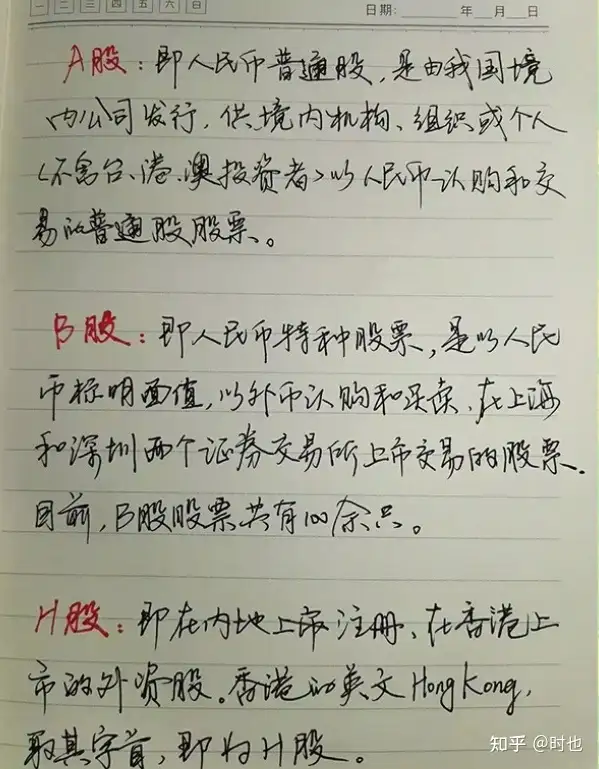 一 二 三 四 五 六 日
日期: 年 月 日
A股：即人民币普通股，是由我国境
内公司发行，供境内机构、组织或个人
（不含台、港、澳投资者）以人民币认购和交
易的普通股股票。
B股：即人民币特种股票，是以人民
币标明面值，以外币认购和买卖、在上海
和深圳两个证券交易所上市交易的股票.
目前，B股股票共有100余只。
H股：即在内地上市注册、在香港上
市的外资股。香港的英文HongKong，
取其字首，即为H股。
知乎 @时也